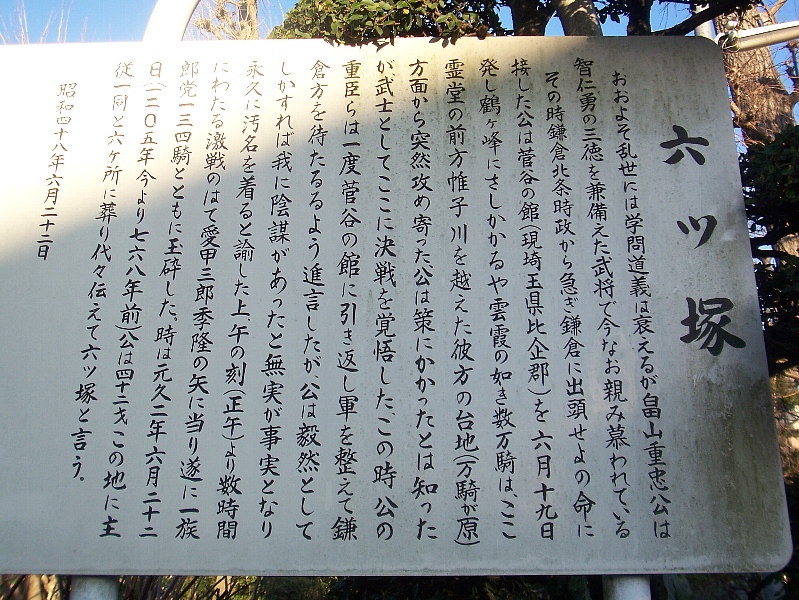 六ッ塚
おおよそ乱世には学問道義は衰えるが畠山重忠公は
智仁勇の三徳を兼備えた武将で今なお親み慕われている
その時鎌倉北条時政から急ぎ鎌倉に出頭せよの命に
接した公は菅谷の館(現埼玉県比企郡)を六月十九日
発し鶴ヶ峰にさしかかるや雲霞の如き数万騎は、ここ
霊堂の前方帷子川を越えた彼方の台地(万騎が原)
方面から突然攻め寄った公は策にかかったとは知った
が武士としてここに決戦を覚悟した、この時公の
重臣らは一度菅谷の館に引き返し軍を整えて鎌
倉方を待たるるよう進言したが公は毅然として
しかすれば我に陰謀があったと無実が事実となり
永久に汚名を着ると諭した上、午の刻(正午)より数時間
にわたる激戦のはて愛甲三郎季隆の矢に当り遂に一族
郎党一三四騎とともに玉砕した。時は元久二年六月二十二
日(一二〇五年今より七六八年前)公は四十二才、この地に主
従一同と六ヶ所に葬り代々伝えて六ッ塚と言う。
昭和四十八年六月二十二日